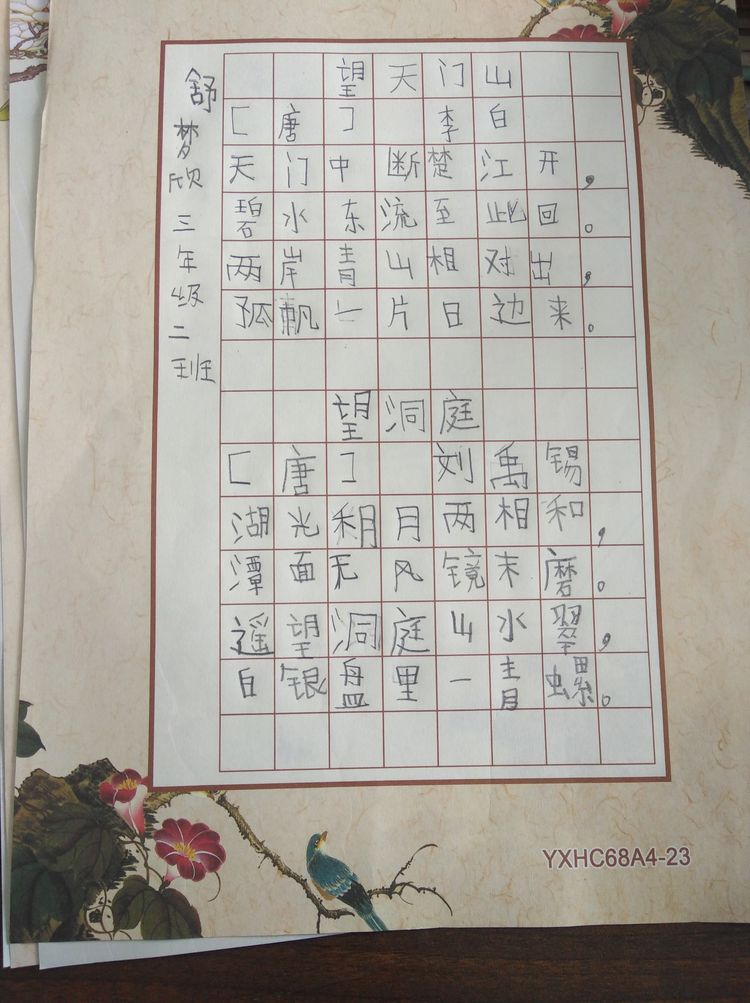 舒梦欣三年级二班
望天门山
[唐] 李白
天门中断楚江开，
碧水东流至此回。
两岸青山相对出，
孤帆一片日边来。
望洞庭
[唐] 刘禹锡
湖光月两相和，
潭面无风镜末磨。
遥望洞庭山水翠，
白银盘里一青螺。
YXHC68A4-23